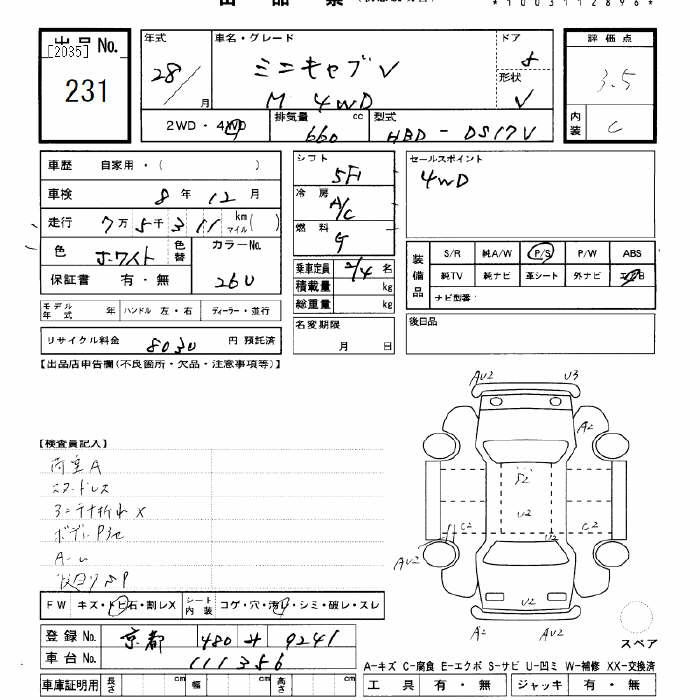 *1003112896*
出品 No.
[2035]
231
年式
28/
月
車名・グレード
ミニキャブ V
M 4WD
ドア
5
形状
V
評価点
3.5
内装
C
2WD・4WD
排気量
660
cc
型式
HBD - DS17V
車歴
自家用・( )
車検
8 年 12 月
走行
7万 5千 3 11 km マイル ( )
色
ホワイト
色替
カラーNo.
26U
保証書
有・無
シフト
5F
冷房
A/C
燃料
G
乗車定員
2/4 名
積載量
kg
総重量
kg
セールスポイント
4WD
装備品
S/R 純A/W P/S P/W ABS
純TV 純ナビ 革シート 外ナビ
ナビ型番:
モデル年式
年
ハンドル 左・右
ディーラー・並行
リサイクル料金
8030
円 預託済
名変期限
月 日
後日品
【出品店申告欄(不良箇所・欠品・注意事項等)】
【検査員記入】
荷室A
スタードレス
アンテナ折れ X
FW
キズ・トビ石・割レX
シート内装
コゲ・穴・汚レ・シミ・破レ・スレ
登録 No.
京都 480 せ 9241
車台 No.
111356
車庫証明用
長さ
cm
幅
cm
高さ
cm
AU2
U3
A2
S2
U2
C2
C2
AU2
U2
U2
U2
A2
AU2
スペア
A-キズ C-腐食 E-エクボ S-サビ U-凹ミ W-補修 XX-交換済
工具
有・無
ジャッキ
有・無